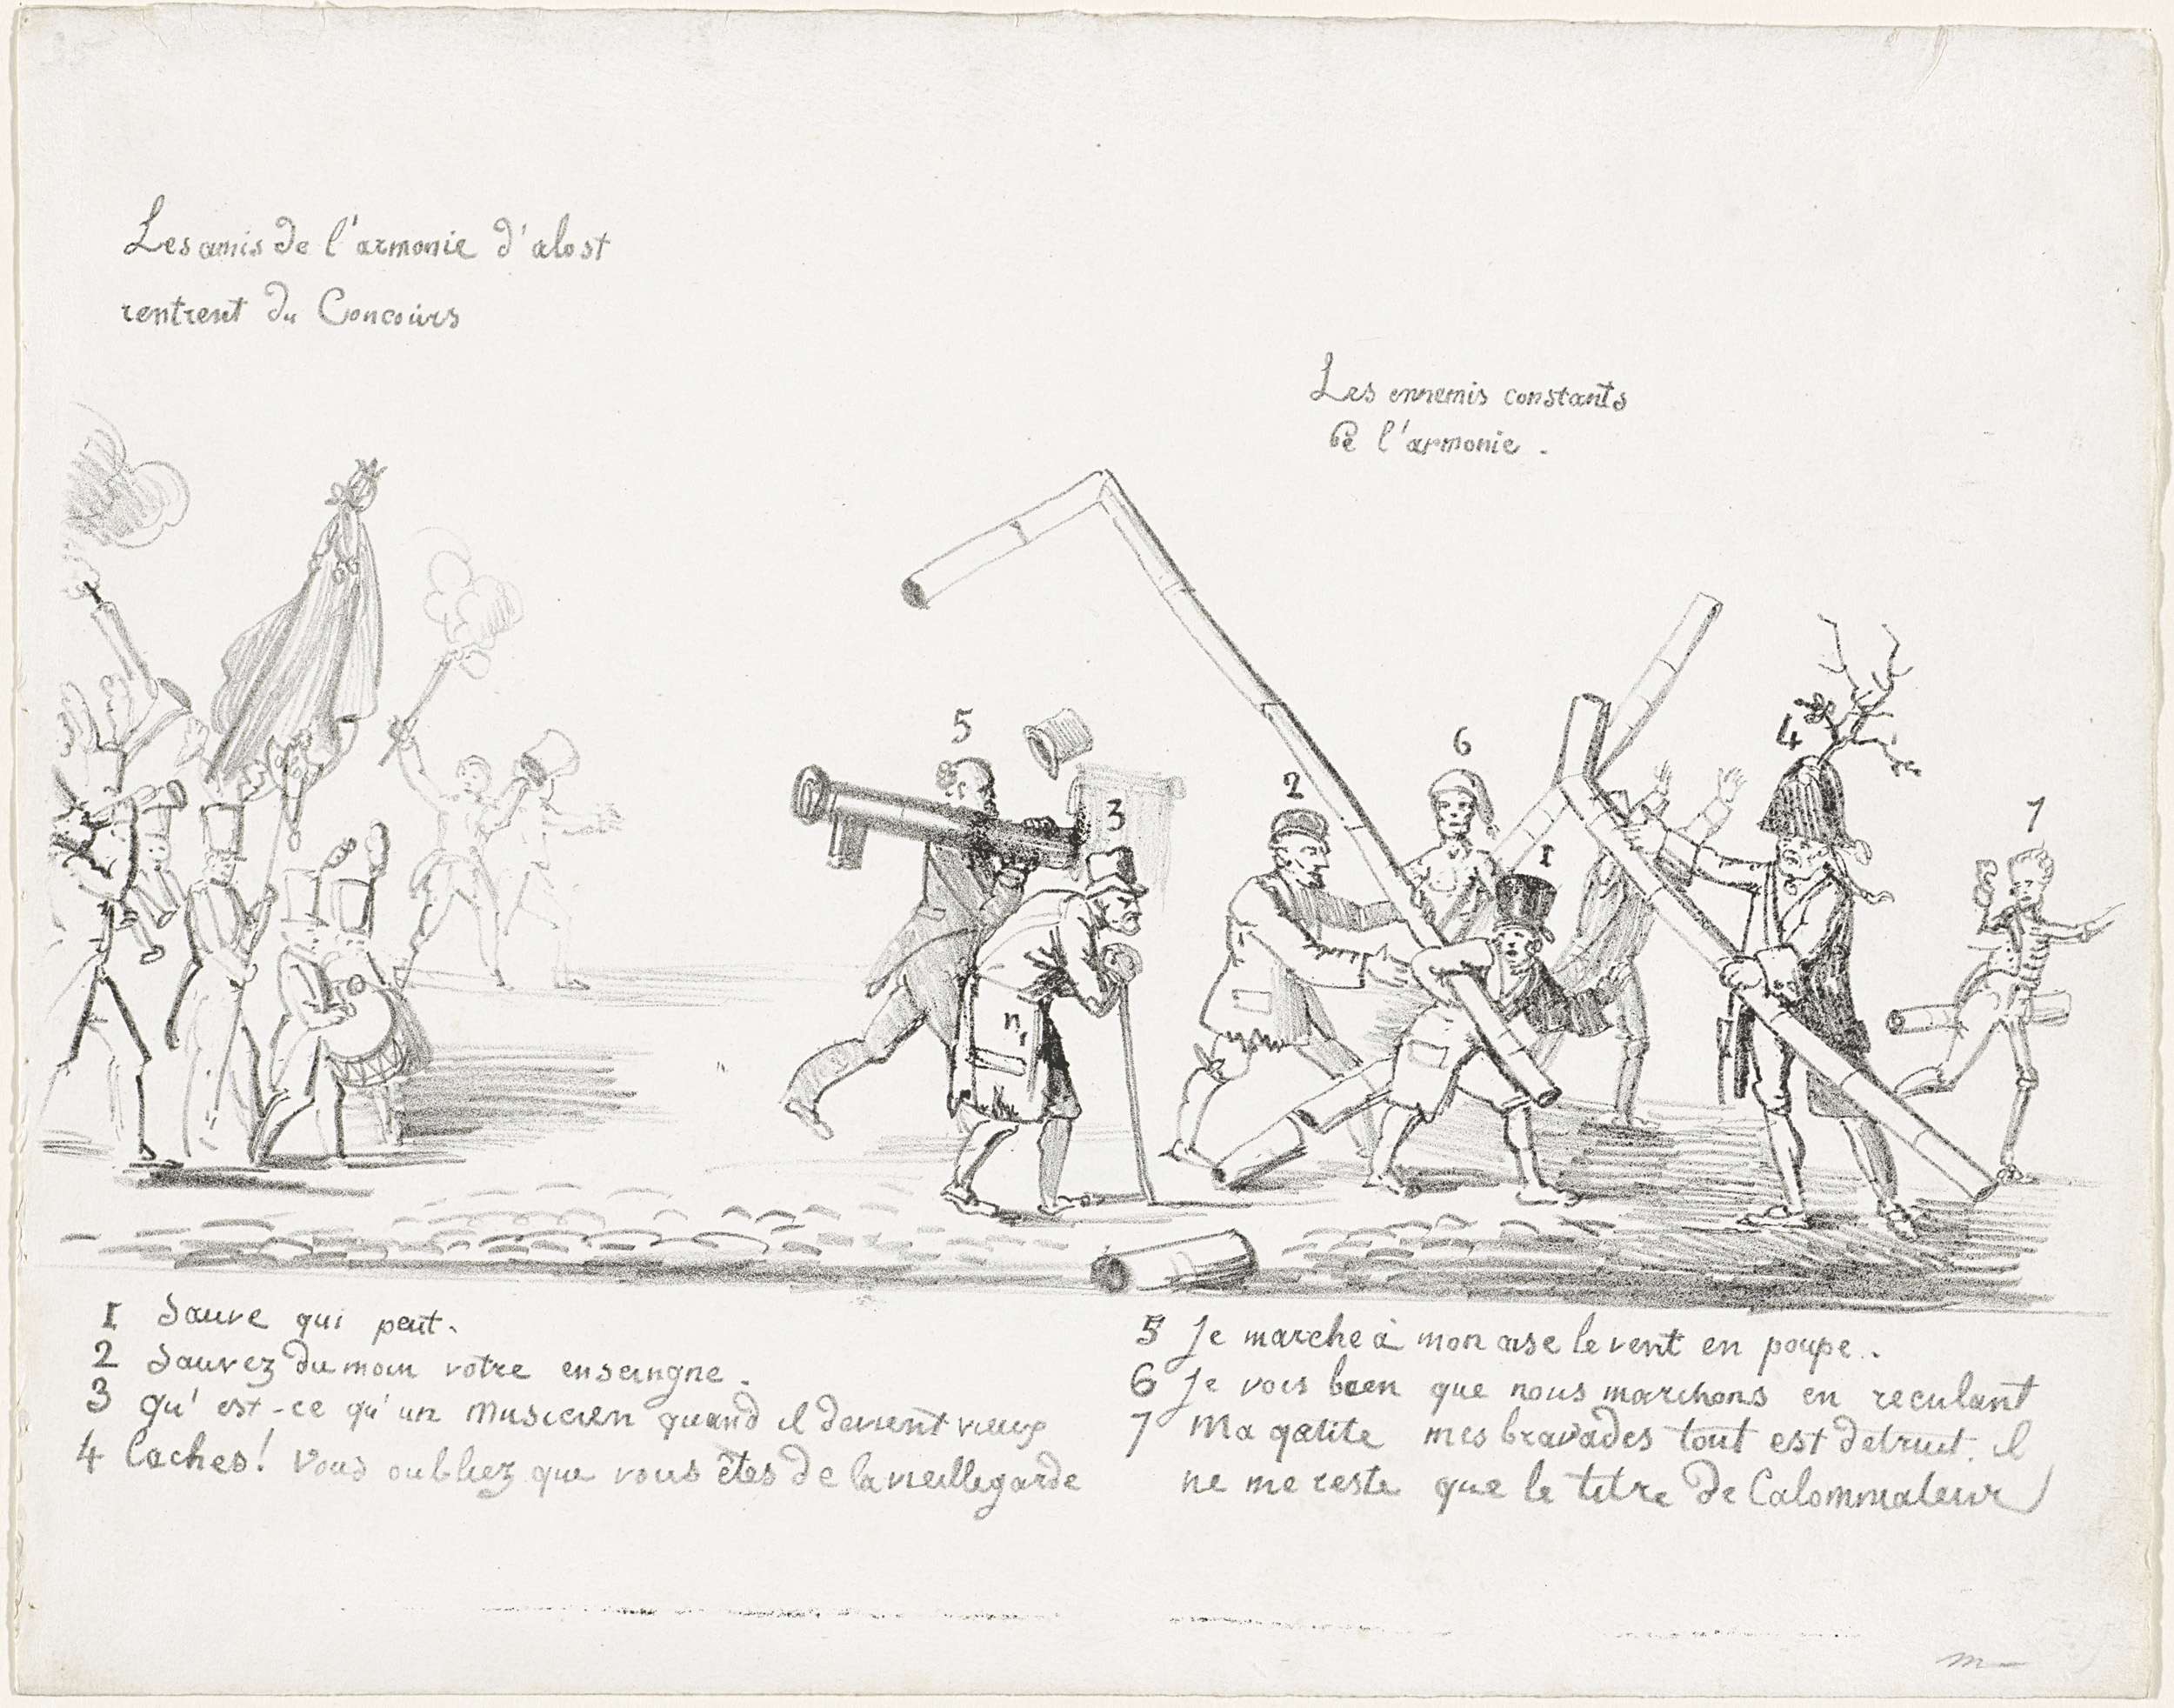 Les amis de l'armonie d'alost
rentrent du Concours
Les ennemis constants
de l'armonie.
5
3
2
6
1
4
7
n,
1 Sauve qui peut.
2 Sauvez du moin votre enseingne.
3 qu'est-ce qu'un Musicien quand il devient vieux
4 laches! Vous oubliez que vous êtes de la vieille garde
5 Je marche à mon aise le vent en poupe..
6 Je vois bien que nous marchons en reculant
7 Ma qalite mes bravades tout est detruit. il
ne me reste que le titre de Calommateur